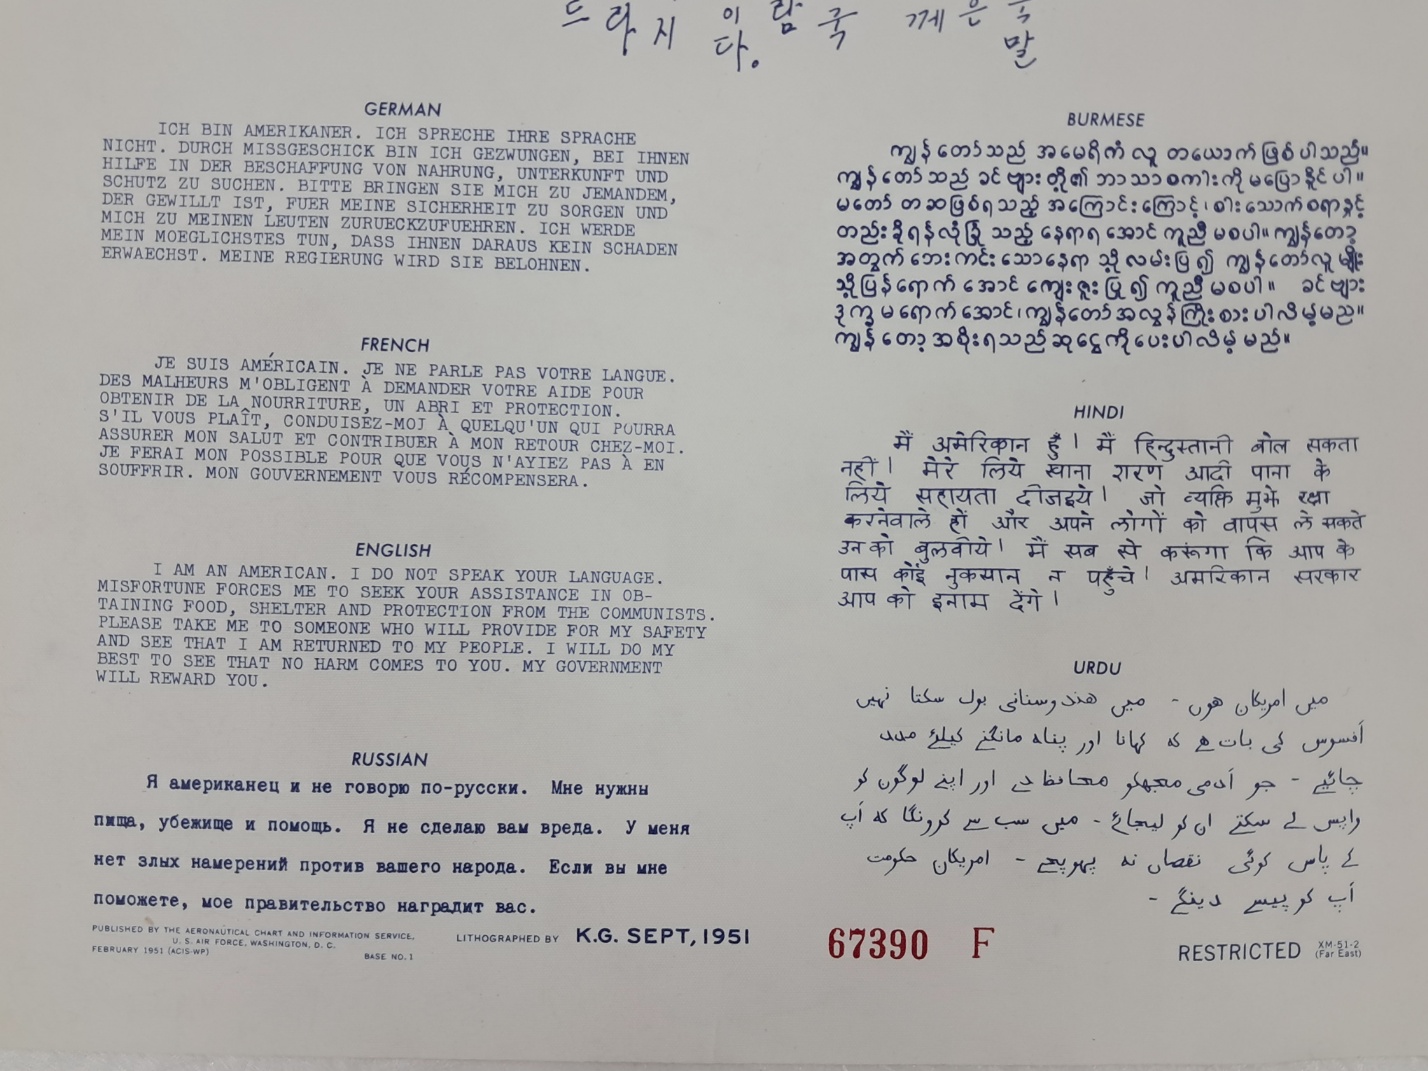 드 라 지 이 람 국 께 은
다. 말
GERMAN
ICH BIN AMERIKANER. ICH SPRECHE IHRE SPRACHE
NICHT. DURCH MISSGESCHICK BIN ICH GEZWUNGEN, BEI IHNEN
HILFE IN DER BESCHAFFUNG VON NAHRUNG, UNTERKUNFT UND
SCHUTZ ZU SUCHEN. BITTE BRINGEN SIE MICH ZU JEMANDEM,
DER GEWILLT IST, FUER MEINE SICHERHEIT ZU SORGEN UND
MICH ZU MEINEN LEUTEN ZURUECKZUFUEHREN. ICH WERDE
MEIN MOEGLICHSTES TUN, DASS IHNEN DARAUS KEIN SCHADEN
ERWAECHST. MEINE REGIERUNG WIRD SIE BELOHNEN.
FRENCH
JE SUIS AMÉRICAIN. JE NE PARLE PAS VOTRE LANGUE.
DES MALHEURS M'OBLIGENT À DEMANDER VOTRE AIDE POUR
OBTENIR DE LA NOURRITURE, UN ABRI ET PROTECTION.
S'IL VOUS PLAÎT, CONDUISEZ-MOI À QUELQU'UN QUI POURRA
ASSURER MON SALUT ET CONTRIBUER À MON RETOUR CHEZ-MOI.
JE FERAI MON POSSIBLE POUR QUE VOUS N'AYIEZ PAS À EN
SOUFFRIR. MON GOUVERNEMENT VOUS RÉCOMPENSERA.
ENGLISH
I AM AN AMERICAN. I DO NOT SPEAK YOUR LANGUAGE.
MISFORTUNE FORCES ME TO SEEK YOUR ASSISTANCE IN OB-
TAINING FOOD, SHELTER AND PROTECTION FROM THE COMMUNISTS.
PLEASE TAKE ME TO SOMEONE WHO WILL PROVIDE FOR MY SAFETY
AND SEE THAT I AM RETURNED TO MY PEOPLE. I WILL DO MY
BEST TO SEE THAT NO HARM COMES TO YOU. MY GOVERNMENT
WILL REWARD YOU.
RUSSIAN
Я американец и не говорю по-русски. Мне нужны
пища, убежище и помощь. Я не сделаю вам вреда. У меня
нет злых намерений против вашего народа. Если вы мне
поможете, мое правительство наградит вас.
PUBLISHED BY THE AERONAUTICAL CHART AND INFORMATION SERVICE,
U. S. AIR FORCE, WASHINGTON, D. C.
FEBRUARY 1951 (ACIS-WP) BASE NO. 1
LITHOGRAPHED BY K.G. SEPT, 1951
BURMESE
ကျွန်တော်သည် အမေရိကံ လူ တယောက် ဖြစ်ပါသည်။
ကျွန်တော်သည် ခင်ဗျားတို့၏ ဘာသာစကားကို မပြောနိုင်ပါ။
မတော်တဆဖြစ်ရသည့် အကြောင်းကြောင့်၊ စားသောက်စရာနှင့်
တည်းခိုရန်လုံခြုံ သည့် နေရာရအောင် ကူညီမစပါ။ ကျွန်တော့်
အတွက် ဘေးကင်းသောနေရာသို့ လမ်းပြ၍ ကျွန်တော်လူမျိုး
သို့ပြန်ရောက်အောင် ကျေးဇူးပြု၍ ကူညီမစပါ။ ခင်ဗျား
ဒုက္ခမရောက်အောင်၊ ကျွန်တော်အလွန်ကြိုးစားပါလိမ့်မည်။
ကျွန်တော့်အစိုးရသည် ဆုငွေကိုပေးပါလိမ့်မည်။
HINDI
मैं अमेरिकान हुँ। मैं हिन्दुस्तानी बोल सकता
नहीं। मेरे लिये खाना शरण आदी पाना के
लिये सहायता दीजइये। जो व्यक्ति मुझे रक्षा
करनेवाले हों और अपने लोगों को वापस ले सकते
उनको बुलवीये। मैं सब से करूंगा कि आप के
पास कोई नुकसान न पहुँचे। अमरिकान सरकार
आप को इनाम देंगे।
URDU
میں امریکان ھوں - میں ھندوستانی بول سکتا نہیں
افسوس کی بات ھے کہ کھانا اور پناہ مانگنے کیلئے مدد
چائیے - جو آدمی مجھکو محافظ دے اور اپنے لوگوں کو
واپس لے سکتے ان کو لیجائے - میں سب سے کرونگا کہ آپ
کے پاس کوئی نقصان نہ پہوپچے - امریکان حکومت
آپ کو پیسے دینگے -
67390 F
RESTRICTED XM-51-2
(Far East)